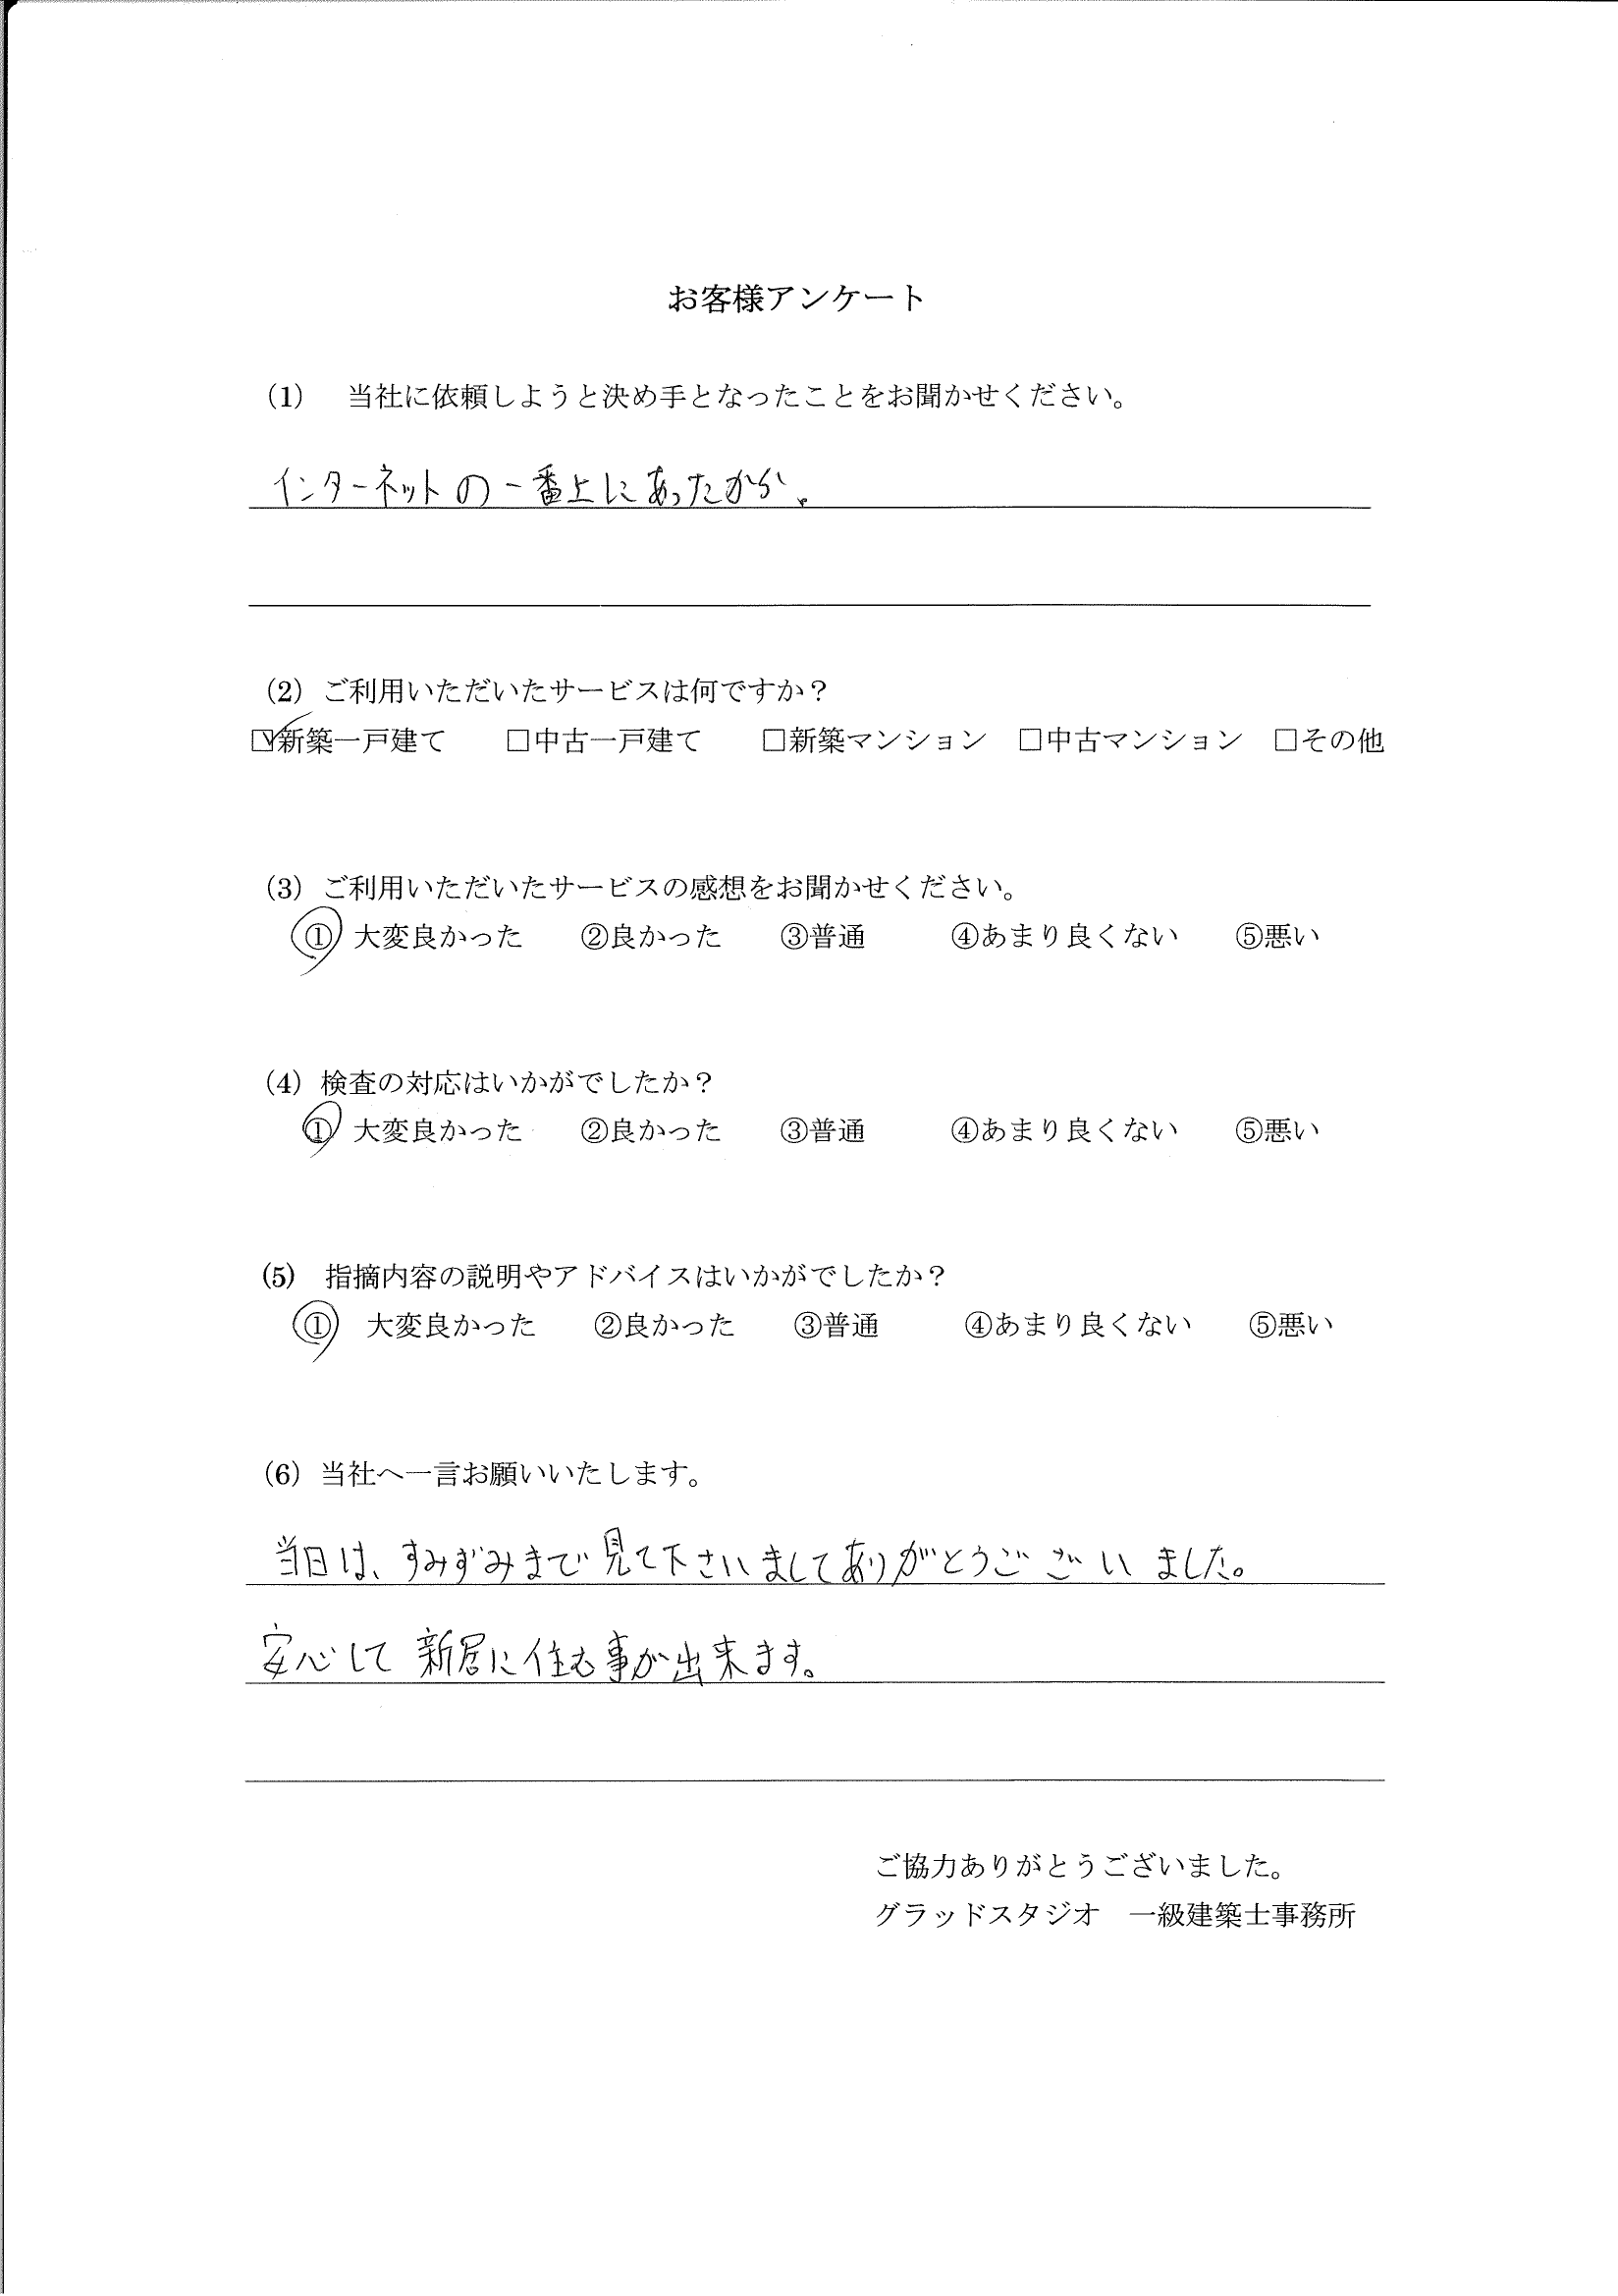 お客様アンケート
(1)　当社に依頼しようと決め手となったことをお聞かせください。
インターネットの一番上にあったから。
(2) ご利用いただいたサービスは何ですか？
☑新築一戸建て　□中古一戸建て　□新築マンション　□中古マンション　□その他
(3) ご利用いただいたサービスの感想をお聞かせください。
① 大変良かった　②良かった　③普通　④あまり良くない　⑤悪い
(4) 検査の対応はいかがでしたか？
① 大変良かった　②良かった　③普通　④あまり良くない　⑤悪い
(5)　指摘内容の説明やアドバイスはいかがでしたか？
①　大変良かった　②良かった　③普通　④あまり良くない　⑤悪い
(6) 当社へ一言お願いいたします。
当日は、すみずみまで見て下さいましてありがとうございました。
安心して新居に住む事が出来ます。
ご協力ありがとうございました。
グラッドスタジオ　一級建築士事務所